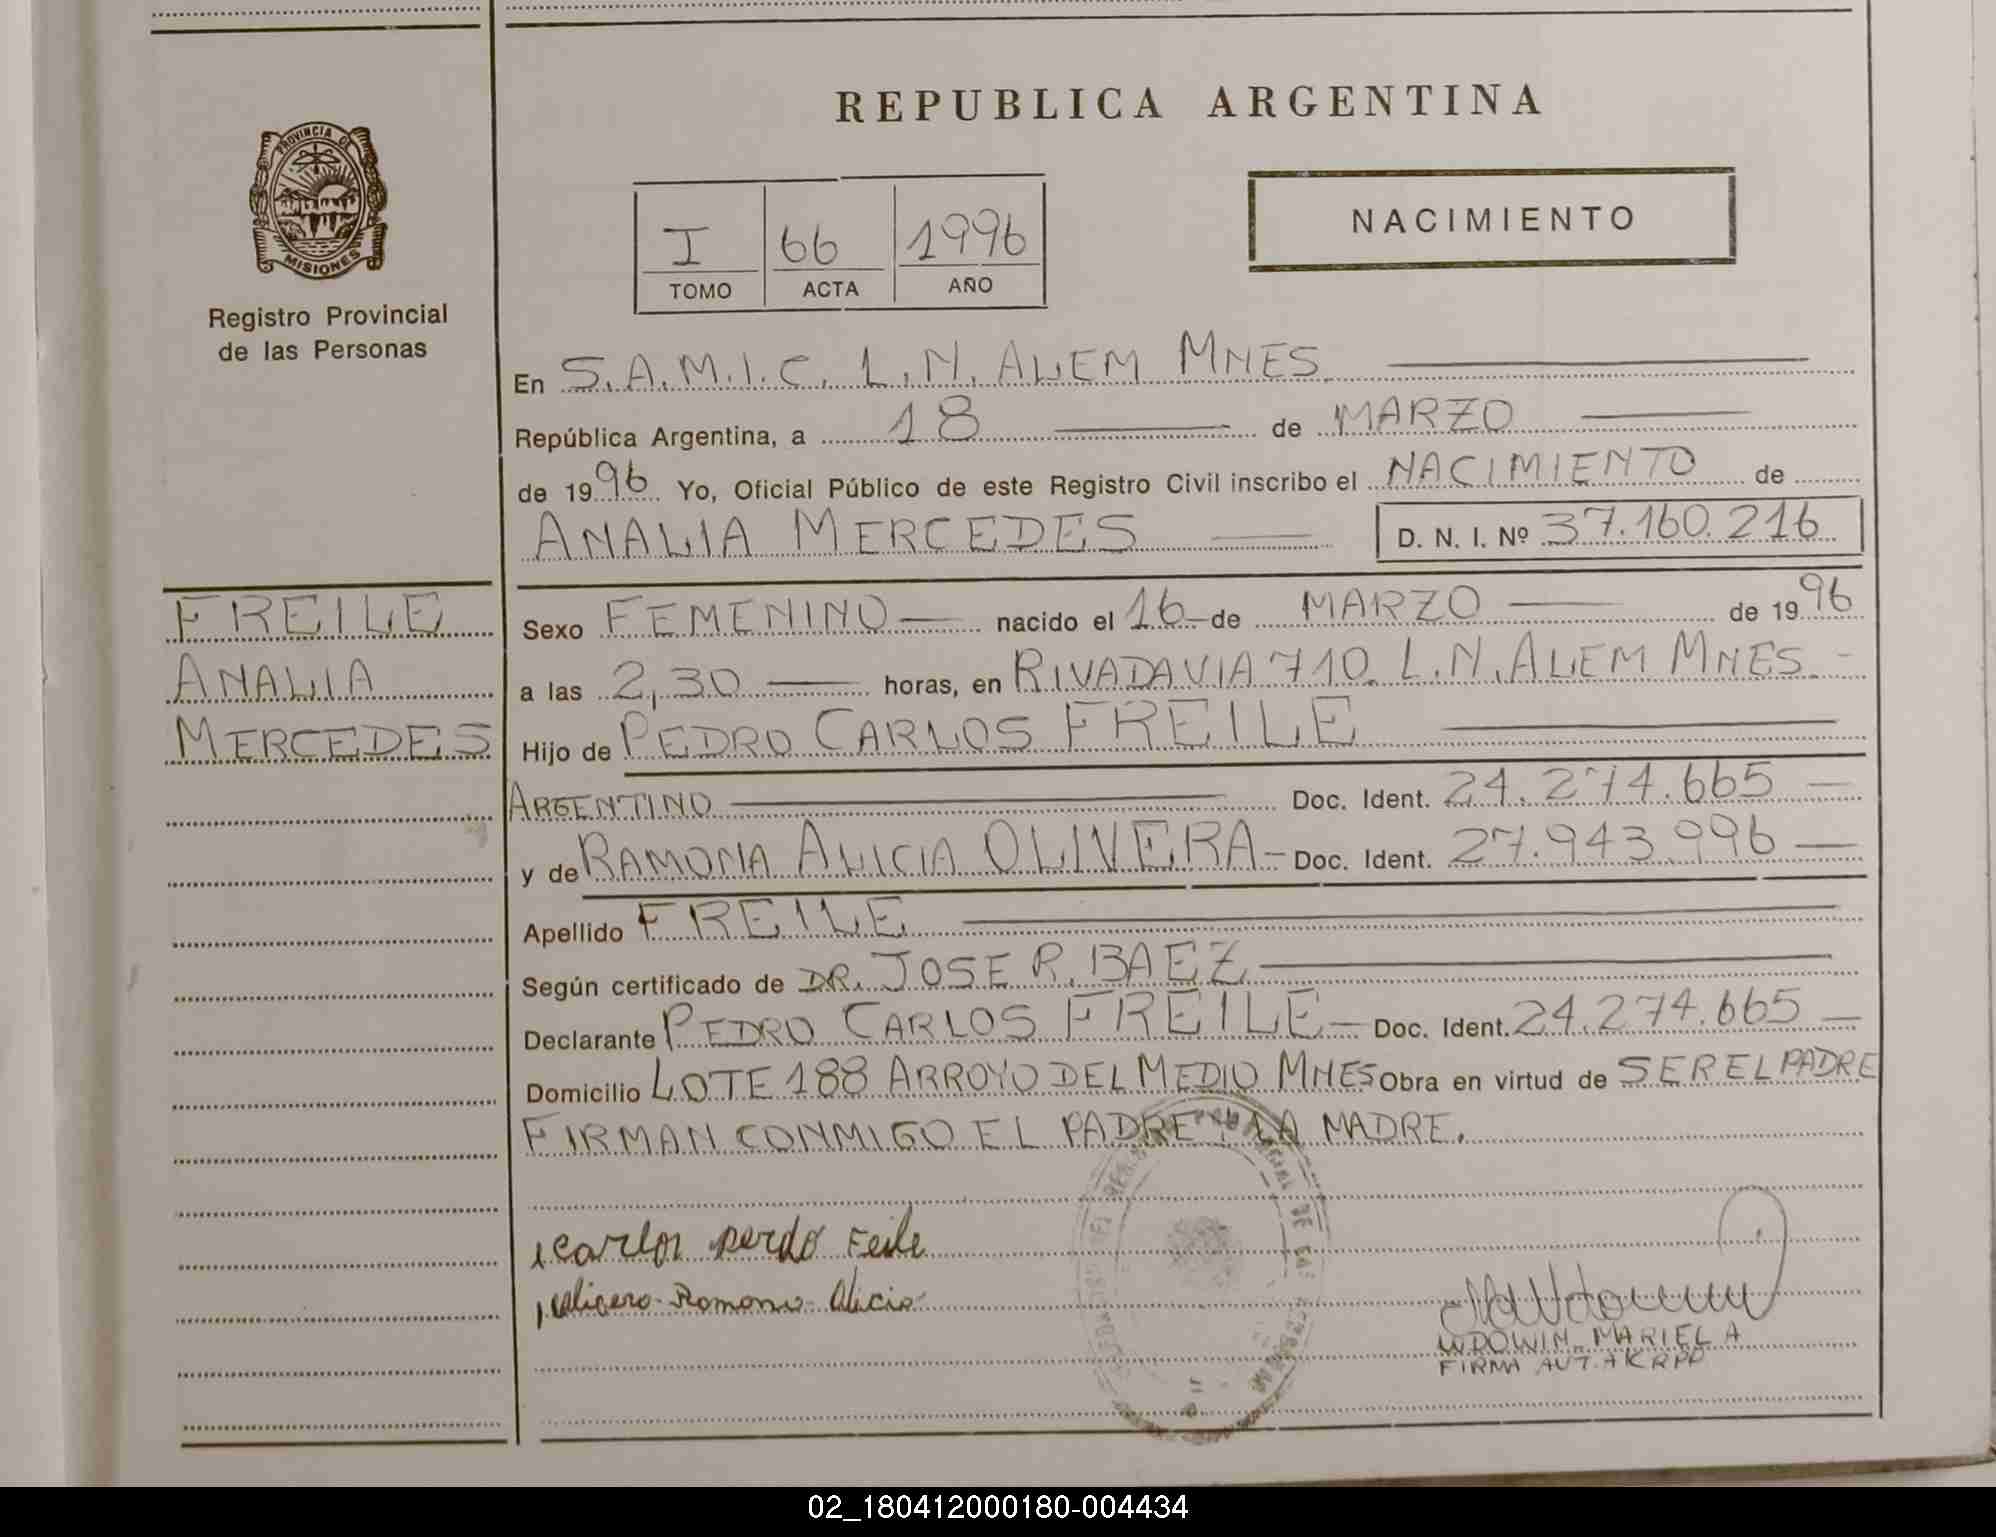 REPUBLICA ARGENTINA
PROVINCIA DE
MISIONES
Registro Provincial
de las Personas
I 66 1996
TOMO ACTA AÑO
NACIMIENTO
En S.A.M.I.C. L.N. ALEM MNES
República Argentina, a 18 de MARZO
de 1996 Yo, Oficial Público de este Registro Civil inscribo el NACIMIENTO de
ANALIA MERCEDES D. N. I. Nº 37.160.216
FREILE
ANALIA
MERCEDES
Sexo FEMENINO nacido el 16 de MARZO de 1996
a las 2,30 horas, en RIVADAVIA 710. L.N. ALEM MNES.
Hijo de PEDRO CARLOS FREILE
ARGENTINO Doc. Ident. 24.274.665
y de RAMONA ALICIA OLIVERA Doc. Ident. 27.943.996
Apellido FREILE
Según certificado de DR. JOSE R. BAEZ
Declarante PEDRO CARLOS FREILE Doc. Ident. 24.274.665
Domicilio LOTE 188 ARROYO DEL MEDIO MNES Obra en virtud de SER EL PADRE
FIRMAN CONMIGO EL PADRE Y LA MADRE.
carlos perdo Feile
Romona Alicia
WDOWIN MARIEL A
FIRMA AUT. A K RPP
02_180412000180-004434